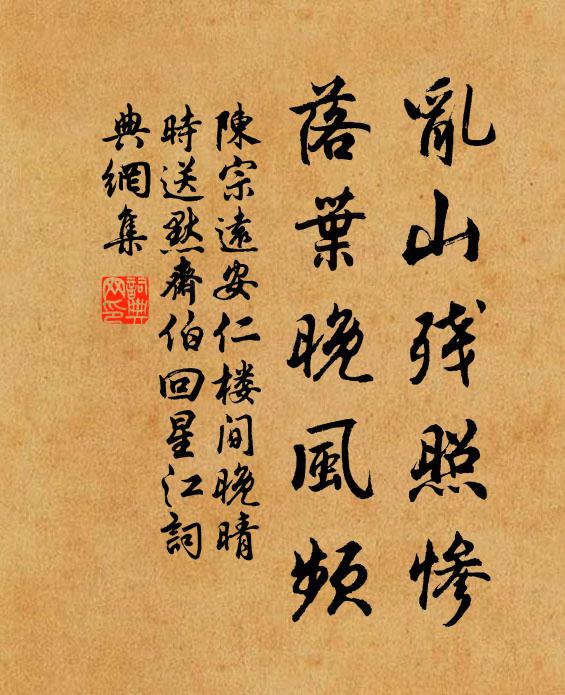 亂山残照惨
落葉晚風頻
陳宗遠安仁楼间晚晴
時送默齋伯回星江詞
典網集
詞典
网印